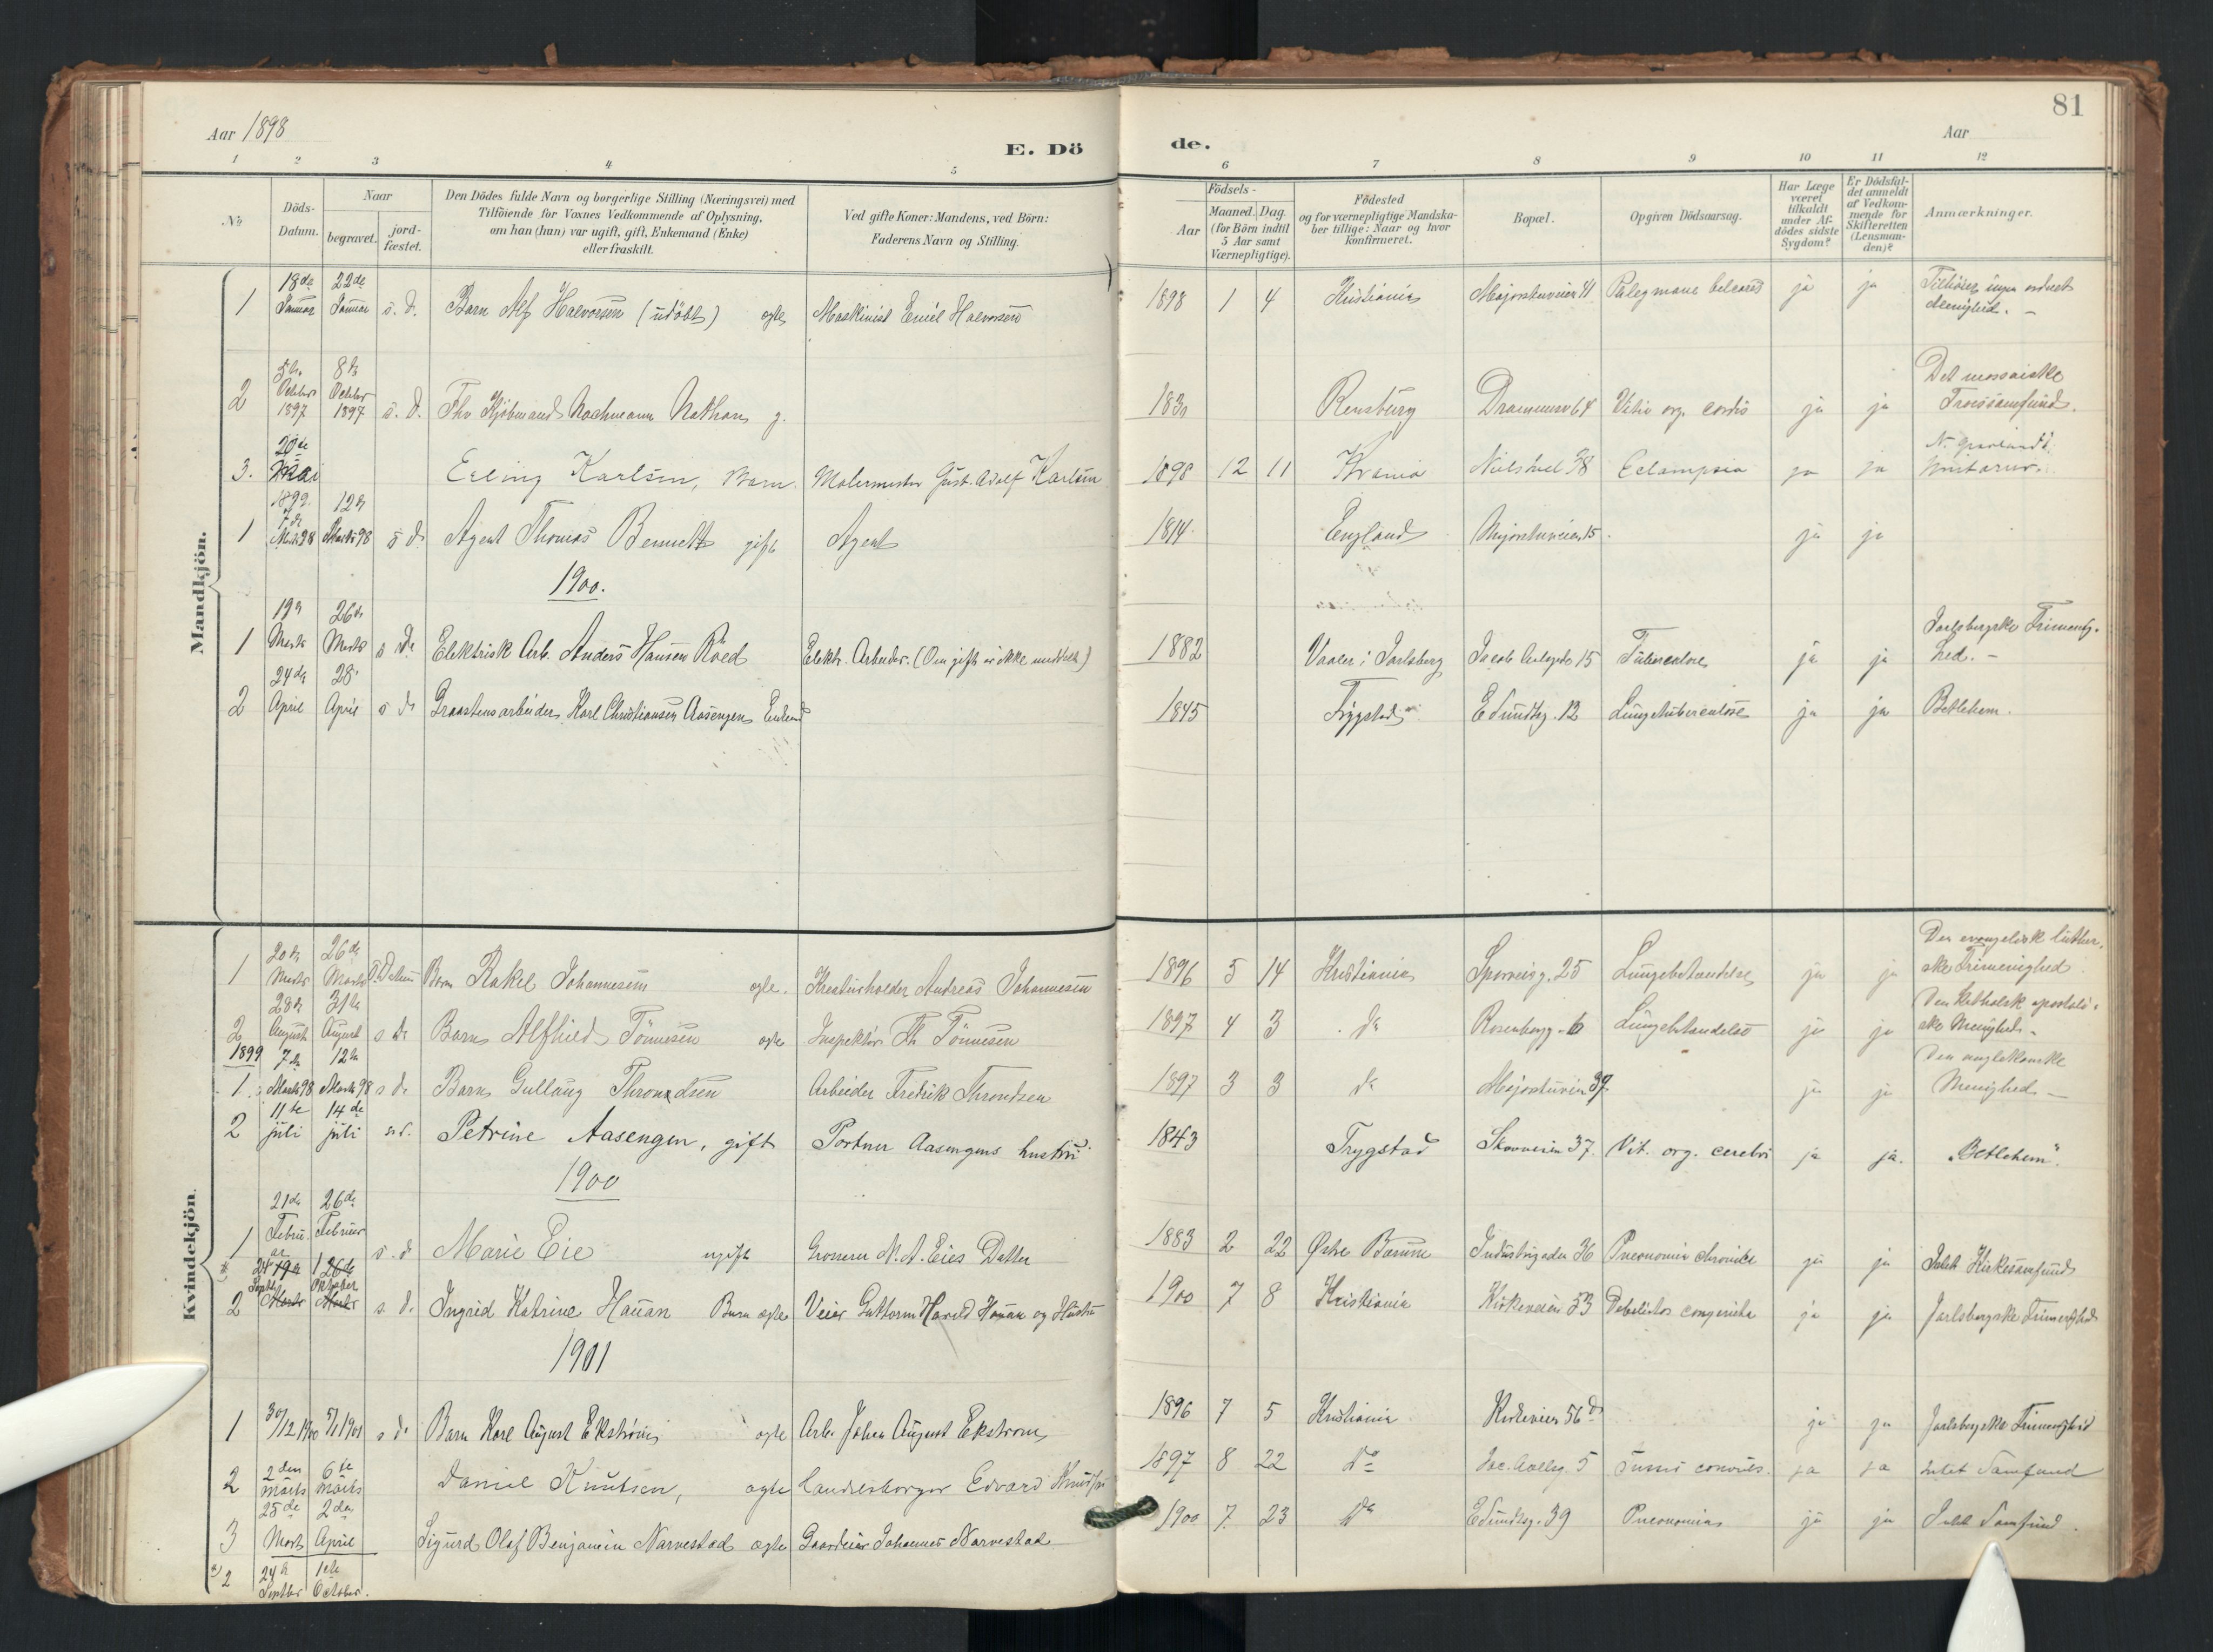 81
Aar 1898
E. Dö
de.
Aar
1 2 3 4 5 6 7 8 9 10 11 12
No
Döds-
Datum.
Naar
begravet.
jord-
fæstet.
Den Dödes fulde Navn og borgerlige Stilling (Næringsvei) med
Tilföiende for Voxnes Vedkommende af Oplysning,
om han (hun) var ugift, gift, Enkemand (Enke)
eller fraskilt.
Ved gifte Koner: Mandens, ved Börn:
Faderens Navn og Stilling.
Födsels-
Aar
Maaned. Dag.
(for Börn indtil
5 Aar samt
Værnepligtige).
Födested
og for værnepligtige Mandska-
ber tillige: Naar og hvor
konfirmeret.
Bopæl.
Opgiven Dödsaarsag.
Har Læge
været
tilkaldt
under Af-
dödes sidste
Sygdom?
Er Dödsfal-
det anmeldt
af Vedkom-
mende for
Skifteretten
(Lensman-
den)?
Anmærkninger.
Mandkjön.
18de 22de
1 Januar Januar s. d. Barn Alf Halvorsen (udöbt) ægte Maskinist Emil Halvorsen 1898 1 4 Kristiania Majorstuveien 41 ja ja Tilhører ingen ordnet
Menighed. -
5te 8de
2 Octbr Octbr s. d. Fhv Kjøbmand Nachmann Nathan g. 1830 Rensburg Drammensv 64 Vitiv org. cordis ja ja Det mosaiske
1897 1897 Troessamfund.
20de
3. Mai Erling Karlsen, Barn. Malermester Gust. Adolf Karlsen 1898 12 11 Krania Eclampsia ja ja
1899.
7de 12te
1 Marts 98 Marts 98 s d. Agent Thomas Bennett gift Agent 1814. England Majorstuveien 15. ja ja
1900.
19de 26de
1 Marts Marts s d. Elektrisk Arb. Anders Hansen Röed Elektr. Arbeider. (Om gift er ikke meddelt) 1882 Vaaler i Jarlsberg Jacob Aalsgd 15 Tuberculose ja ja Jarlsbergske Frimenig-
hed. -
24de 28.
2 April April s d Graastensarbeider Karl Christiansen Aasengen Enkem 1845 Trygstad Eilundtsg. 12 Lungetuberculose ja ja Bethlehem.
Kvindekjön.
20de 26de
1 Marts Marts Barn Rakel Johannesen ægte. Kreaturholder Andreas Johannesen 1896 5 14 Kristiania Sporveisg. 25 Lungebetændelse ja ja Den evangelisk luther-
ske Frimenighed
28de 31te
2 August August s d. Barn Alfhild Tönnesen ægte Inspektör Th Tönnesen 1897 4 3 do Rosenborgg. 6 Lungebetændelse ja ja Den katholsk apostoli-
ske Menighed.
1899
7de 12te
1. Marts 98 Marts 98 s d. Barn Gullaug Throndsen Arbeider Fredrik Throndsen 1897 3 3 do Majorstuveien 37. ja ja Den anglekanske
Menighed -
11te 14de
2 juli juli s. d. Petrine Aasengen, gift Portner Aasengens hustru. 1843 Trygstad Skovveien 37 Vit. org. cerebri ja ja. "Betlehem".
1900
21de 26de
1 Febru- Februar s. d Marie Eie ugift Grosserer N. A. Eies Datter 1883 2 22 Østre Bærum Industrigaden 36 Pneunomia chronica ja ja Intet Kirkesamfund
ar
24 19de 1 26de
Septbr Oktober
2 Marts Marts s d. Ingrid Katrine Hauan Barn ægte Veier Guttorm Harald Hauan og Hustru 1900 7 8 Kristiania Kirkeveien 53 Debelitas congenita ja ja Jarlsbergske Frimenighed
1901
1 30/12 1900 5/1 1901 s d. Barn Karl August Ekström ægte Arb. Johan August Ekstrom 1896 7 5 Kristiania Kirkeveien 56 d ja ja Jarlsbergske Frimenighed
2den 6te
2 marts marts Daniel Knutsen, ægte Handelsborger Edvard Knudsen 1897 8 22 Do Jac. Aallsg. 5 ja ja Intet Samfund
25de 2den
3 Marts April Sigurd Olaf Benjamin Narvestad ægte Gaardeier Johannes Narvestad 1900 7 23 Do Eilundtsg. 39 Pneonomia ja ja Intet Samfund.
2 24de 1ste
Septbr October.